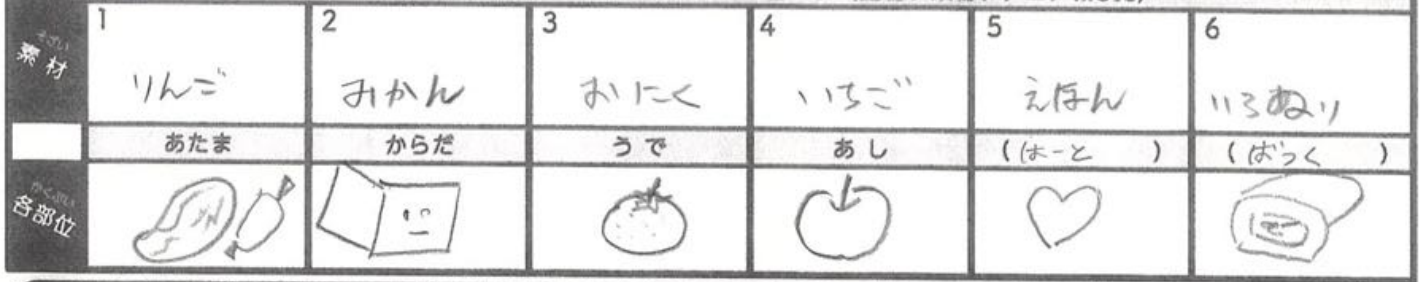 そざい
素材
1
りんご
2
みかん
3
おにく
4
いちご
5
えほん
6
いろぬり
あたま
からだ
うで
あし
(はーと)
(ばっく)
かくぶい
各部位